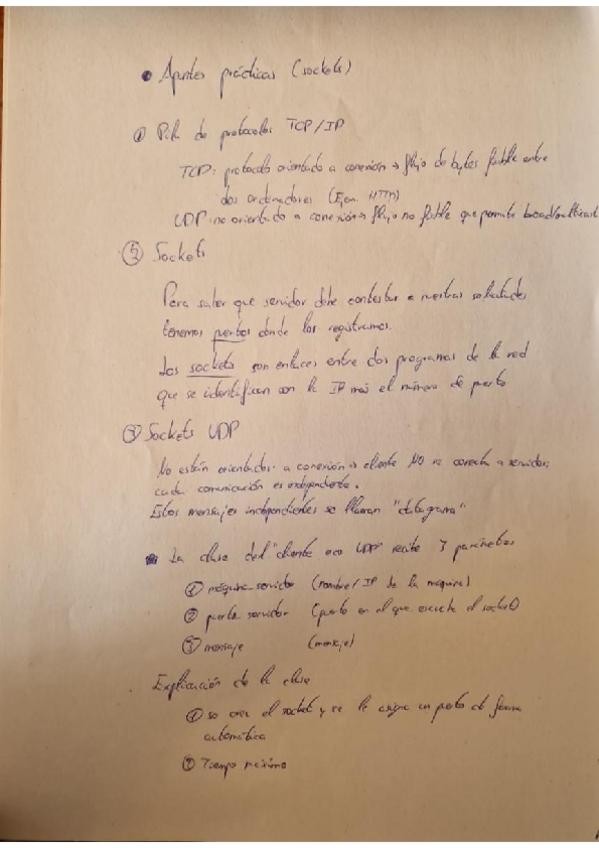 • Apuntes prácticas (sockets)
① Pila de protocolos TCP/IP
TCP: protocolo orientado a conexión → flujo de bytes fiable entre
dos ordenadores (Ejem. HTTP)
UDP: no orientado a conexión → flujo no fiable que permite broad/multicast
② Sockets
Para saber que servidor debe contestar a nuestras solicitudes
tenemos puertos donde los registramos.
Los sockets son enlaces entre dos programas de la red
que se identifican con la IP más el número de puerto
③ Sockets UDP
No están orientados a conexión → cliente NO se conecta a servidor,
cada comunicación es independiente.
Estos mensajes independientes se llaman "datagrama"
La clase del "cliente eco UDP" recibe 3 parámetros
① máquina servidor (nombre/IP de la máquina)
② puerto servidor (puerto en el que escucha el socket)
③ mensaje (mensaje)
Explicación de la clase
① se crea el socket y se le asigna un puerto de forma
automática
② Tiempo máximo